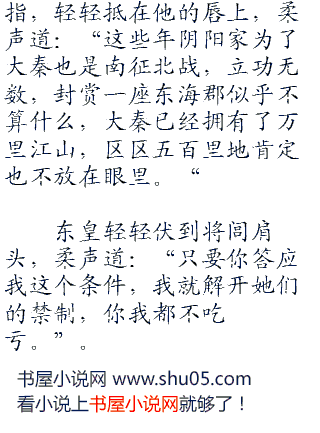 指，轻轻抵在他的唇上，柔
声道：“这些年阴阳家为了
大秦也是南征北战，立功无
数，封赏一座东海郡似乎不
算什么，大秦已经拥有了万
里江山，区区五百里地肯定
也不放在眼里。“
东皇轻轻伏到将闾肩
头，柔声道：“只要你答应
我这个条件，我就解开她们
的禁制，你我都不吃
亏。”。
书屋小说网 www.shu05.com
看小说上书屋小说网就够了！